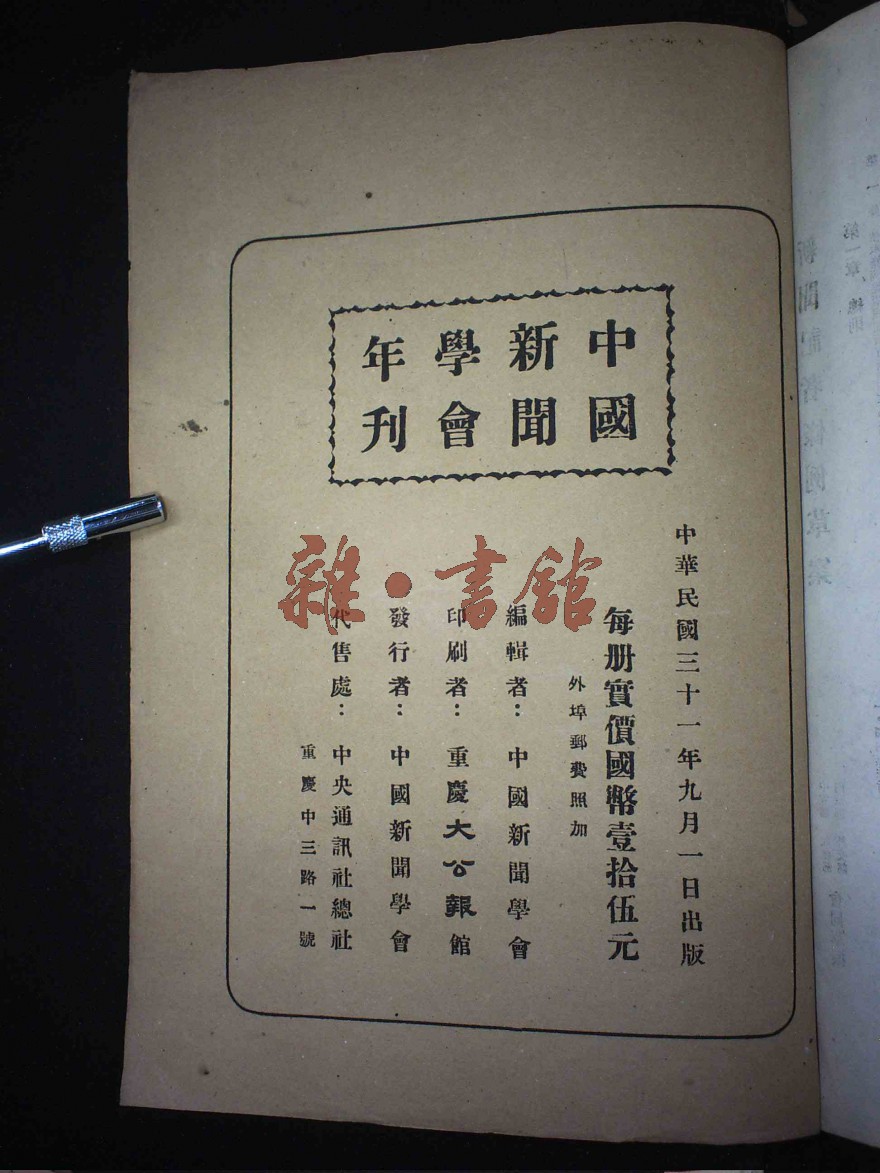 中國新聞學會年刊
中華民國三十一年九月一日出版
每册實價國幣壹拾伍元
外埠郵費照加
編輯者：中國新聞學會
印刷者：重慶大公報館
發行者：中國新聞學會
代售處：中央通訊社總社
重慶中三路一號
雜·書館